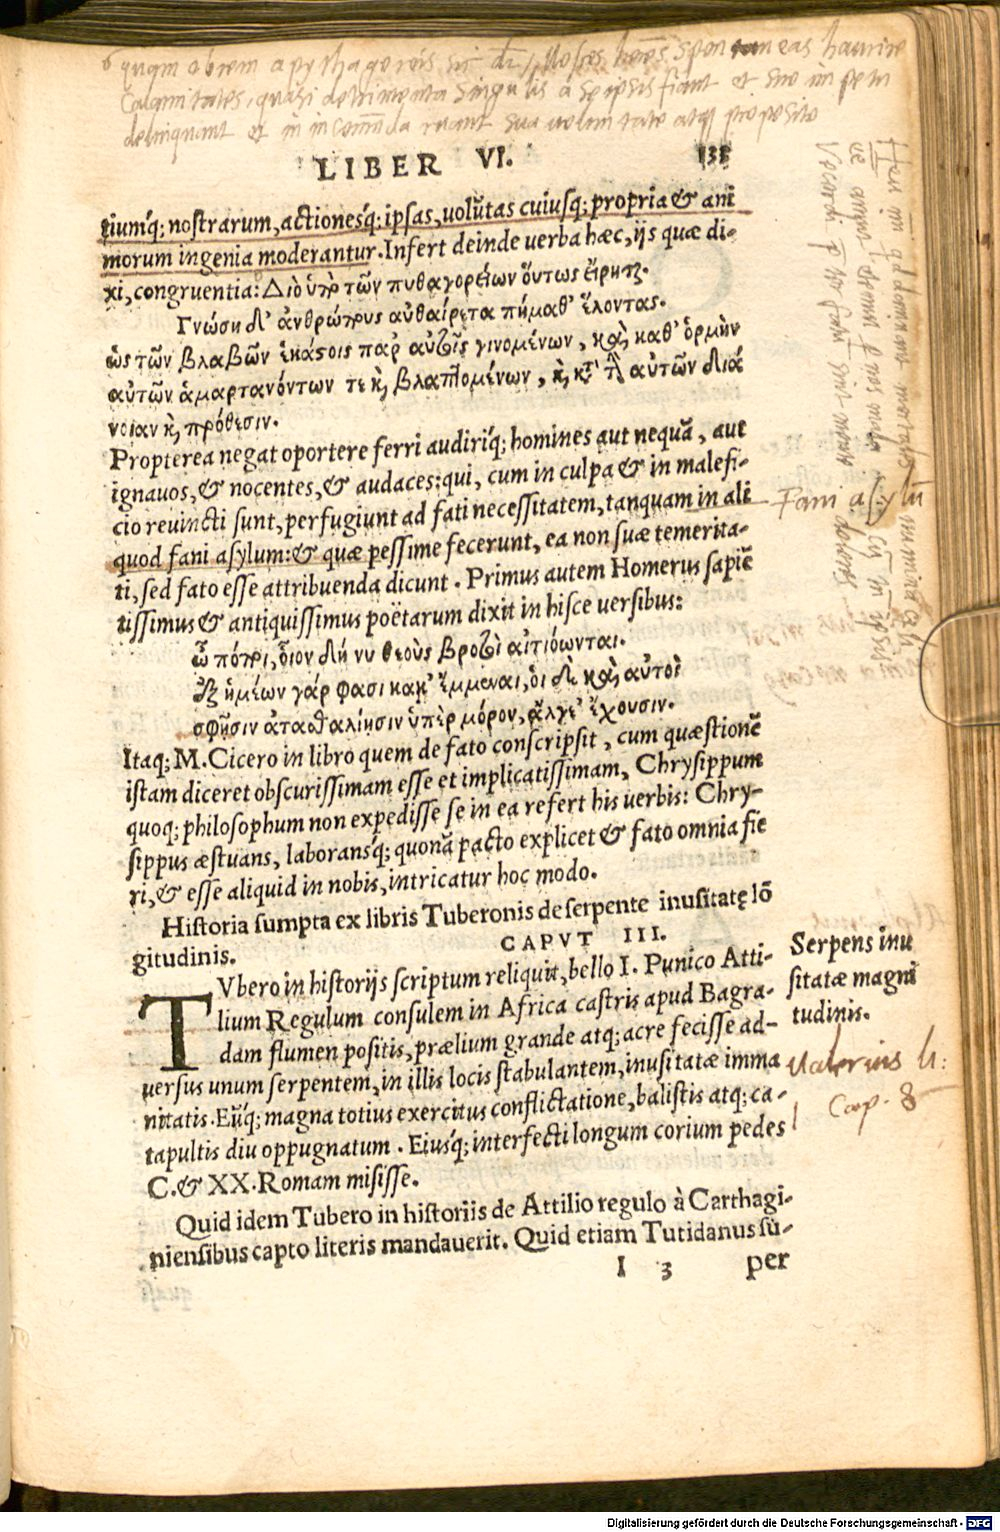 LIBER VI. 131
tiumq́; nostrarum, actionesq́; ipsas, uolūtas cuiusq; propria & ani
morum ingenia moderantur. Infert deinde uerba hæc, ijs quæ di-
xi, congruentia: Διὸ ὑπὸ τῶν πυθαγορείων οὕτως εἴρηται.
Γνώσῃ δ' ἀνθρώπους αὐθαίρετα πήμαθ' ἕλοντας.
ὡς τῶν βλαβῶν ἑκάστοις παρ' αὐτοῖς γινομένων, καὶ καθ' ὁρμὴν
αὐτῶν ἁμαρτανόντων τε καὶ βλαπτομένων, καὶ κατὰ τὴν αὐτῶν διά
νοιαν καὶ πρόθεσιν.
Propterea negat oportere ferri audiriq́; homines aut nequā, aut
ignauos, & nocentes, & audaces: qui, cum in culpa & in malefi-
cio reuincti sunt, perfugiunt ad fati necessitatem, tanquam in ali
quod fani asylum: & quæ pessime fecerunt, ea non suæ temerita-
ti, sed fato esse attribuenda dicunt. Primus autem Homerus sapiē
tissimus & antiquissimus poëtarum dixit in hisce uersibus:
ὦ πόποι, οἷον δή νυ θεοὺς βροτοὶ αἰτιόωνται.
ἐξ ἡμέων γάρ φασι κακ' ἔμμεναι, οἱ δὲ καὶ αὐτοὶ
σφῇσιν ἀτασθαλίῃσιν ὑπὲρ μόρον, ἄλγε' ἔχουσιν.
Itaq; M. Cicero in libro quem de fato conscripsit, cum quæstionē
istam diceret obscurissimam esse et implicatissimam, Chrysippum
quoq; philosophum non expedisse se in ea refert his uerbis: Chry-
sippus æstuans, laboransq́; quonā pacto explicet & fato omnia fie
ri, & esse aliquid in nobis, intricatur hoc modo.
Historia sumpta ex libris Tuberonis de serpente inusitatę lō
gitudinis. CAPVT III.
TVbero in historijs scriptum reliquit, bello I. Punico Atti-
lium Regulum consulem in Africa castris apud Bagra-
dam flumen positis, prælium grande atq; acre fecisse ad-
uersus unum serpentem, in illis locis stabulantem, inusitatæ imma
nitatis. Eūq́; magna totius exercitus conflictatione, balistis atq; ca-
tapultis diu oppugnatum. Eiusq́; interfecti longum corium pedes
C. & XX. Romam misisse.
Quid idem Tubero in historiis de Attilio regulo à Carthagi-
niensibus capto literis mandauerit. Quid etiam Tutidanus sū-
I 3 per
Fani asylū
Serpens inu
sitatæ magni
tudinis.
Valerius li:
Cap. 8
Digitalisierung gefördert durch die Deutsche Forschungsgemeinschaft - DFG